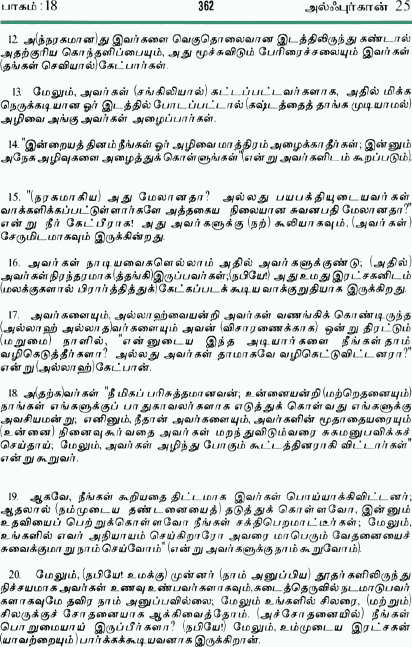 பாகம் : 18 362 அல்ஃபுர்கான் 25
12. அ(ந்நரகமான)து இவர்களை வெகுதொலைவான இடத்திலிருந்து கண்டால்
அதற்குரிய கொந்தளிப்பையும், அது மூச்சுவிடும் பேரிரைச்சலையும் இவர்கள்
(தங்கள் செவியால்) கேட்பார்கள்.
13. மேலும், அவர்கள் (சங்கிலியால்) கட்டப்பட்டவர்களாக, அதில் மிக்க
நெருக்கடியான ஓர் இடத்தில் போடப்பட்டால் (கஷ்டத்தைத் தாங்க முடியாமல்)
அழிவை அங்கு அவர்கள் அழைப்பார்கள்.
14. "இன்றையத்தினம் நீங்கள் ஓர் அழிவை மாத்திரம் அழைக்காதீர்கள்; இன்னும்
அநேக அழிவுகளை அழைத்துக் கொள்ளுங்கள்" (என்று அவர்களிடம் கூறப்படும்).
15. "(நரகமாகிய) அது மேலானதா? அல்லது பயபக்தியுடையவர்கள்
வாக்களிக்கப்பட்டுள்ளார்களே அத்தகைய நிலையான சுவனபதி மேலானதா?"
என்று நீர் கேட்பீராக! அது அவர்களுக்கு (நற்) கூலியாகவும், (அவர்கள்)
சேருமிடமாகவும் இருக்கின்றது.
16. அவர்கள் நாடியவைகளெல்லாம் அதில் அவர்களுக்குண்டு; (அதில்)
அவர்கள் நிரந்தரமாக (த்தங்கி)இருப்பவர்கள்; (நபியே!) அது உமது இரட்சகனிடம்
(மலக்குகளால் பிரார்த்தித்துக்) கேட்கப்படக் கூடிய வாக்குறுதியாக இருக்கிறது.
17. அவர்களையும், அல்லாஹ்வையன்றி அவர்கள் வணங்கிக் கொண்டிருந்த
(அல்லாஹ் அல்லாத)வர்களையும் அவன் (விசாரணைக்காக) ஒன்று திரட்டும்
(மறுமை) நாளில், "என்னுடைய இந்த அடியார்களை நீங்கள்தாம்
வழிகெடுத்தீர்களா? அல்லது அவர்கள் தாமாகவே வழிகெட்டுவிட்டனரா?"
என்று (அல்லாஹ்) கேட்பான்.
18. அ(தற்க)வர்கள் "நீ மிகப் பரிசுத்தமானவன்; உன்னையன்றி (மற்றெதனையும்)
நாங்கள் எங்களுக்குப் பாதுகாவலர்களாக எடுத்துக் கொள்வது எங்களுக்கு
அவசியமன்று; எனினும், நீதான் அவர்களையும், அவர்களின் மூதாதையரையும்
(உன்னை) நினைவு கூர்வதை அவர்கள் மறந்துவிடும்வரை சுகமனுபவிக்கச்
செய்தாய்; மேலும், அவர்கள் அழிந்து போகும் கூட்டத்தினராகி விட்டார்கள்"
என்று கூறுவர்.
19. ஆகவே, நீங்கள் கூறியதை திட்டமாக இவர்கள் பொய்யாக்கிவிட்டனர்;
ஆதலால் (நம்முடைய தண்டனையைத்) தடுத்துக் கொள்ளவோ, இன்னும்
உதவியைப் பெற்றுக்கொள்ளவோ நீங்கள் சக்திபெறமாட்டீர்கள்; மேலும்,
உங்களில் எவர் அநியாயம் செய்கிறாரோ அவரை மாபெரும் வேதனையைச்
சுவைக்குமாறு நாம் செய்வோம்" (என்று அவர்களுக்கு நாம் கூறுவோம்).
20. மேலும், (நபியே! உமக்கு) முன்னர் (நாம் அனுப்பிய) தூதர்களிலிருந்து
நிச்சயமாக அவர்கள் உணவு உண்பவர்களாகவும், கடைத்தெருவில் நடமாடுபவர்
களாகவுமே தவிர நாம் அனுப்பவில்லை; மேலும் உங்களில் சிலரை, (மற்றும்)
சிலருக்குச் சோதனையாக ஆக்கிவைத்தோம். (அச்சோதனையில்) நீங்கள்
பொறுமையாய் இருப்பீர்களா? (நபியே!) மேலும், உம்முடைய இரட்சகன்
(யாவற்றையும்) பார்க்கக்கூடியவனாக இருக்கிறான்.